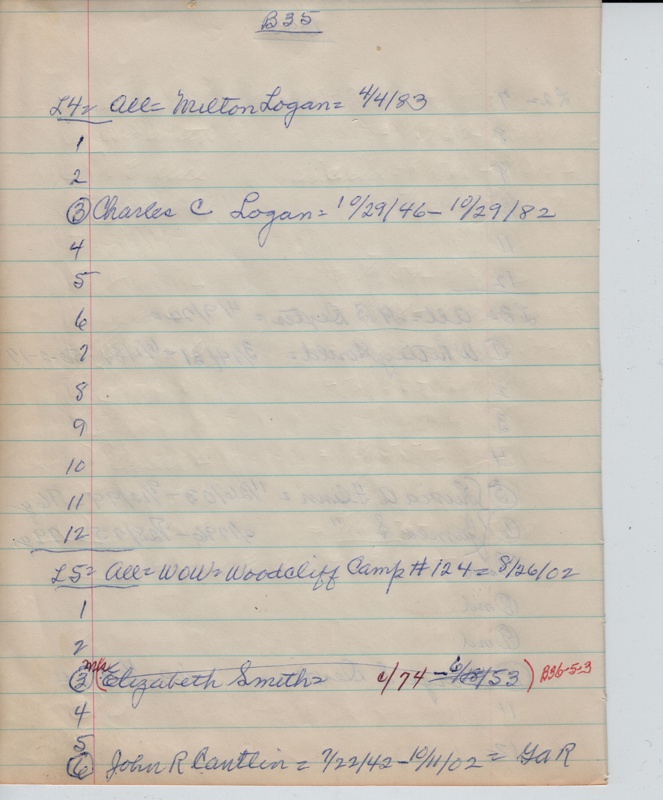 B35
L4= All= Milton Logan= 4/4/83
1
2
③ Charles C Logan= 10/29/46 - 10/29/82
4
5
6
7
8
9
10
11
12
L5= All= WOW= Woodcliff Camp # 124 = 8/26/02
1
2
③ (Elizabeth Smith= c/74 - 6/18/53) B36-5-3
4
5
⑥ John R Cantlin = 7/22/42 - 10/11/02 = GaR